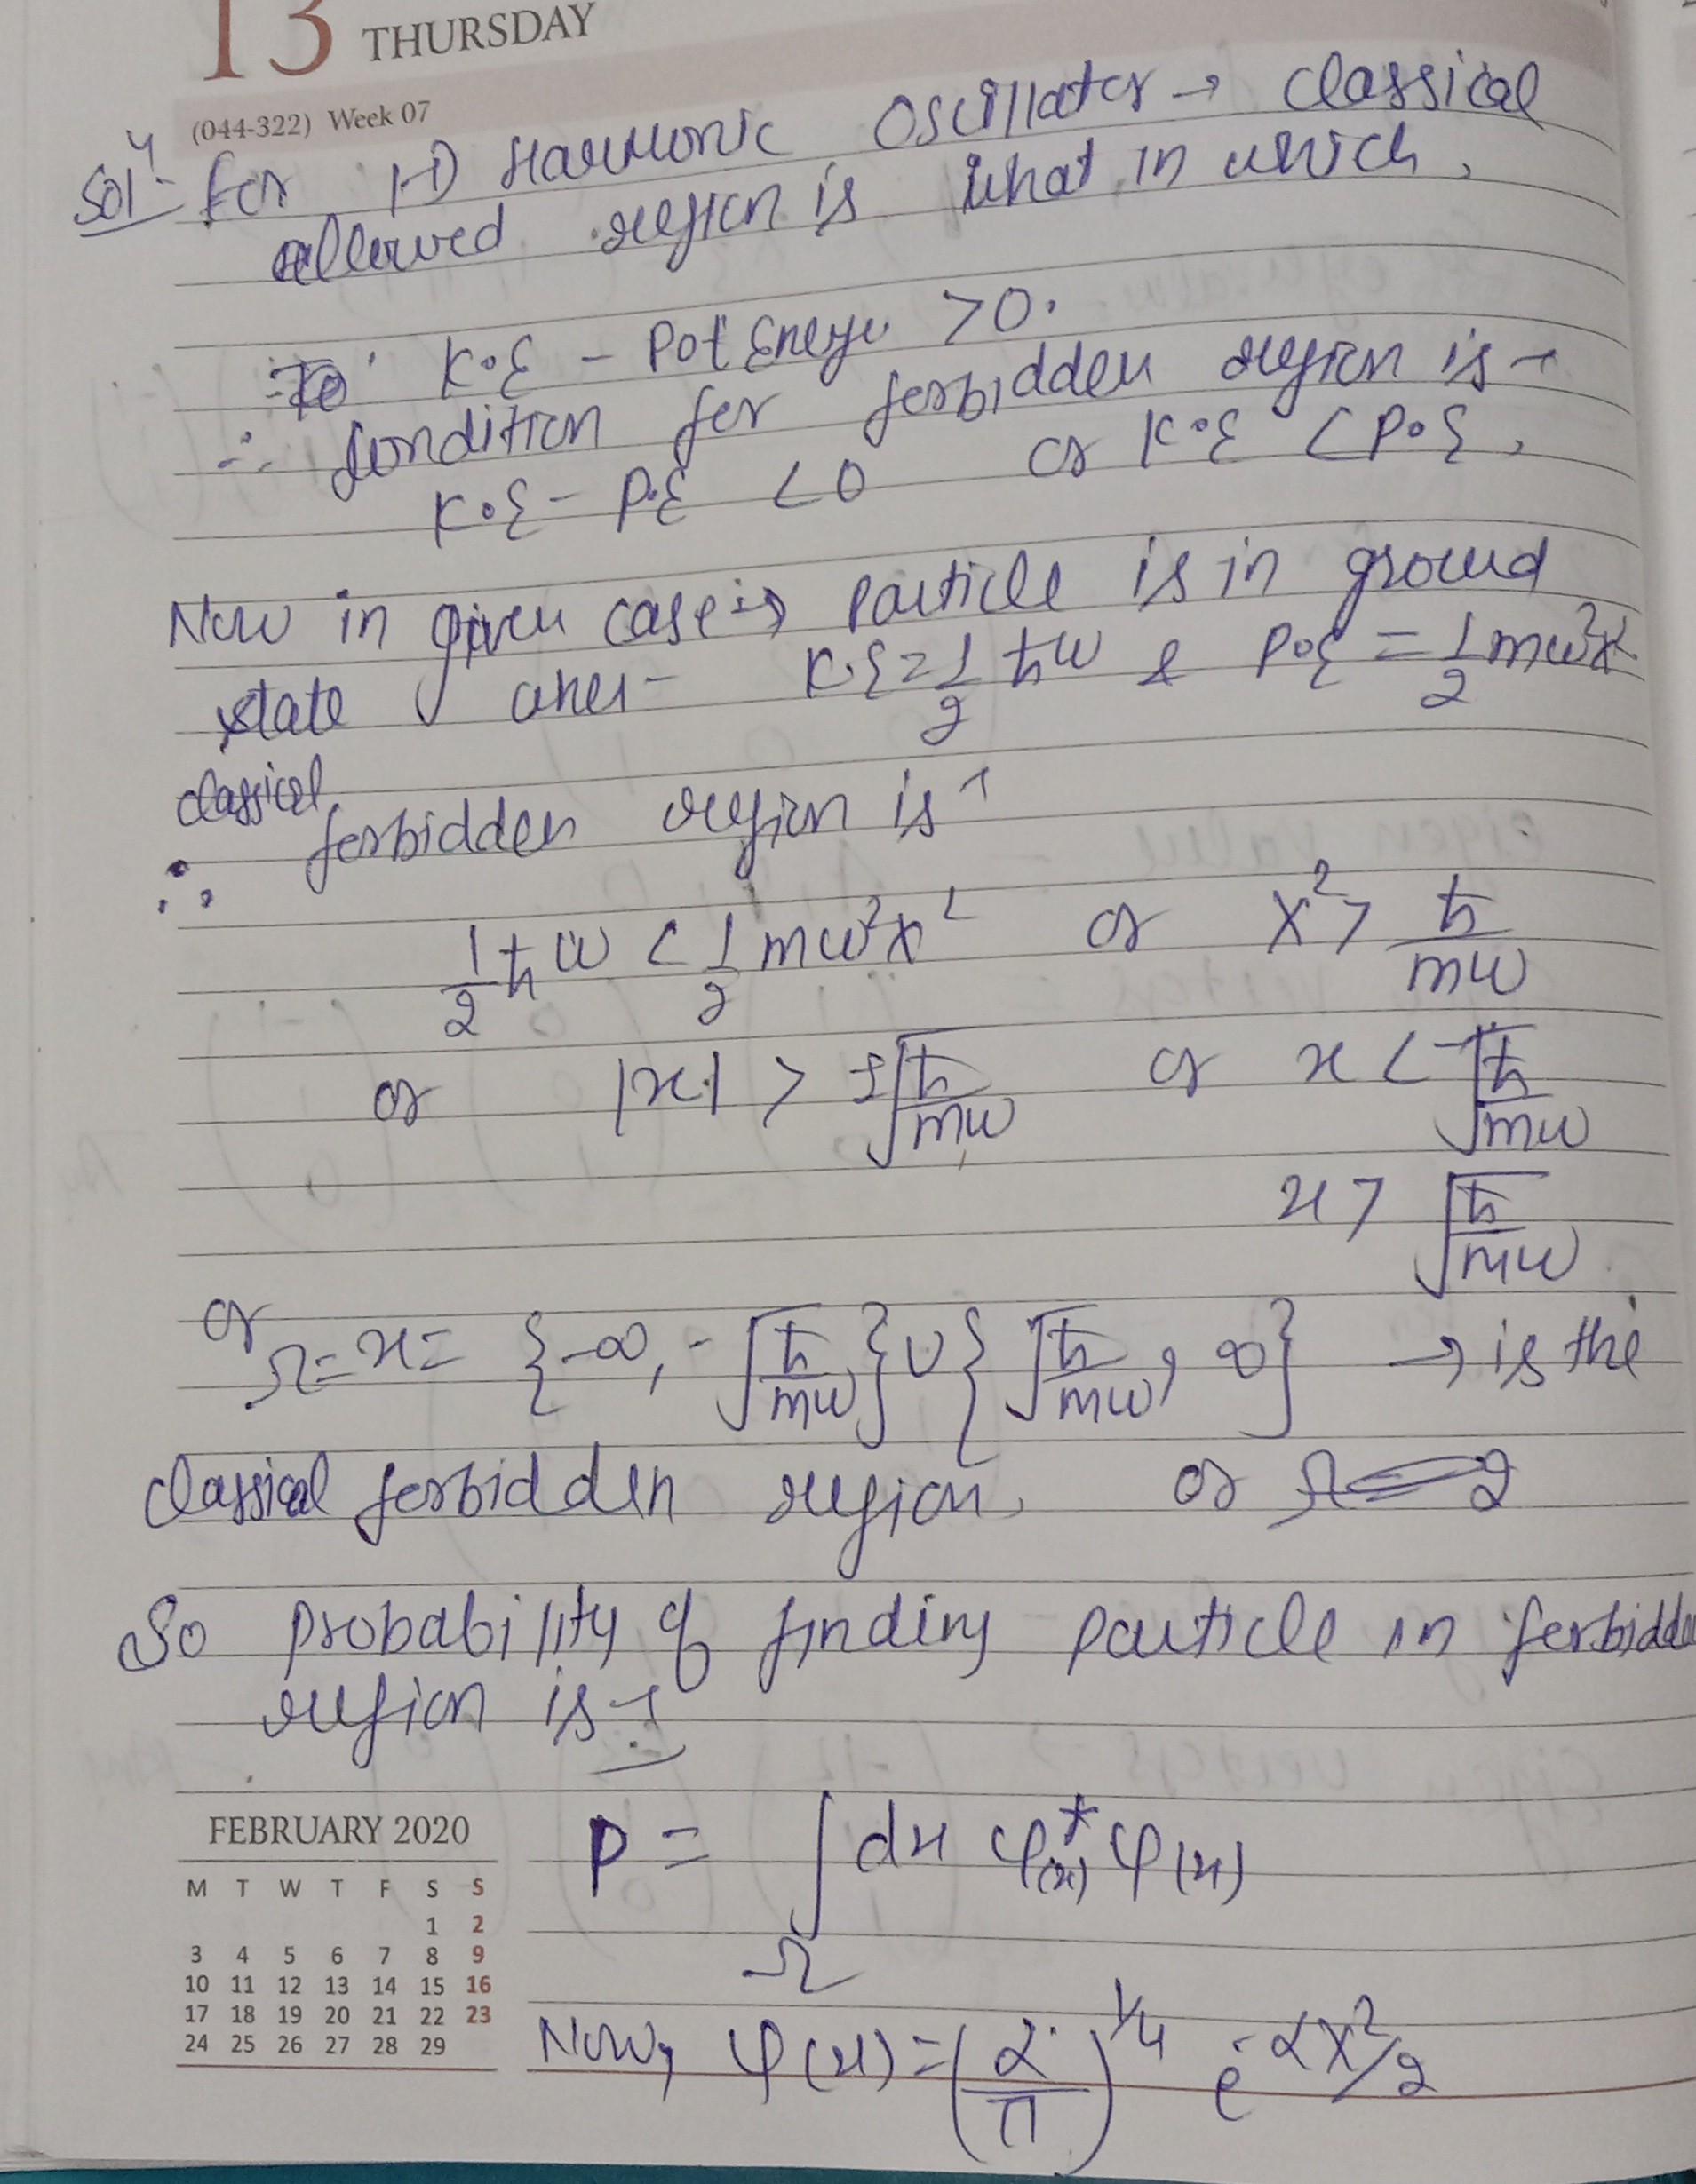 13 THURSDAY
(044-322) Week 07
Solⁿ- for 1-D Harmonic Oscillator → classical
allowed region is what in which,
K.E - Pot Energy >0.
∴ condition for forbidden region is →
K.E - P.E <0 or K.E < P.E,
Now in given case → particle is in ground
state K.E = 1/2 ħω & P.E = 1/2 mω²x²
classical
∴ forbidden region is →
1/2 ħω < 1/2 mω²x² or x² > ħ/mω
or |x| > ±√(ħ/mω) or x < -√(ħ/mω)
x > √(ħ/mω)
or Ω = x = {-∞, -√(ħ/mω)} ∪ {√(ħ/mω), ∞} → is the
classical forbidden region, or
So probability of finding particle in forbidden
region is →
P = ∫_Ω dx φ*(x) φ(x)
Now, φ(x) = (α/π)^1/4 e^-αx²/2
FEBRUARY 2020
M T W T F S S
1 2
3 4 5 6 7 8 9
10 11 12 13 14 15 16
17 18 19 20 21 22 23
24 25 26 27 28 29